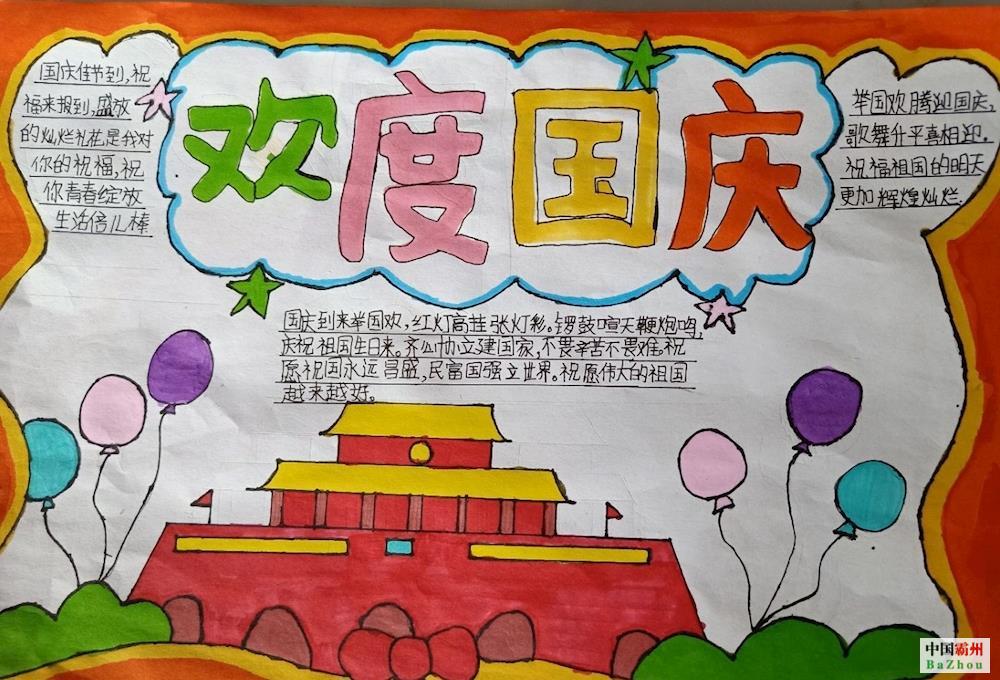 欢度国庆
国庆佳节到,祝
福来报到,盛放
的灿烂礼花,是我对
你的祝福,祝
你青春绽放
生活倍儿棒
举国欢腾迎国庆,
歌舞升平喜相迎.
祝福祖国的明天
更加辉煌灿烂.
国庆到来举国欢,红灯高挂张灯彩。锣鼓喧天鞭炮鸣,
庆祝祖国生日来。齐心协立建国家,不畏辛苦不畏难。祝
愿祝国永远昌盛,民富国强立世界。祝愿伟大的祖国
越来越好。
中国霸州
BaZhou